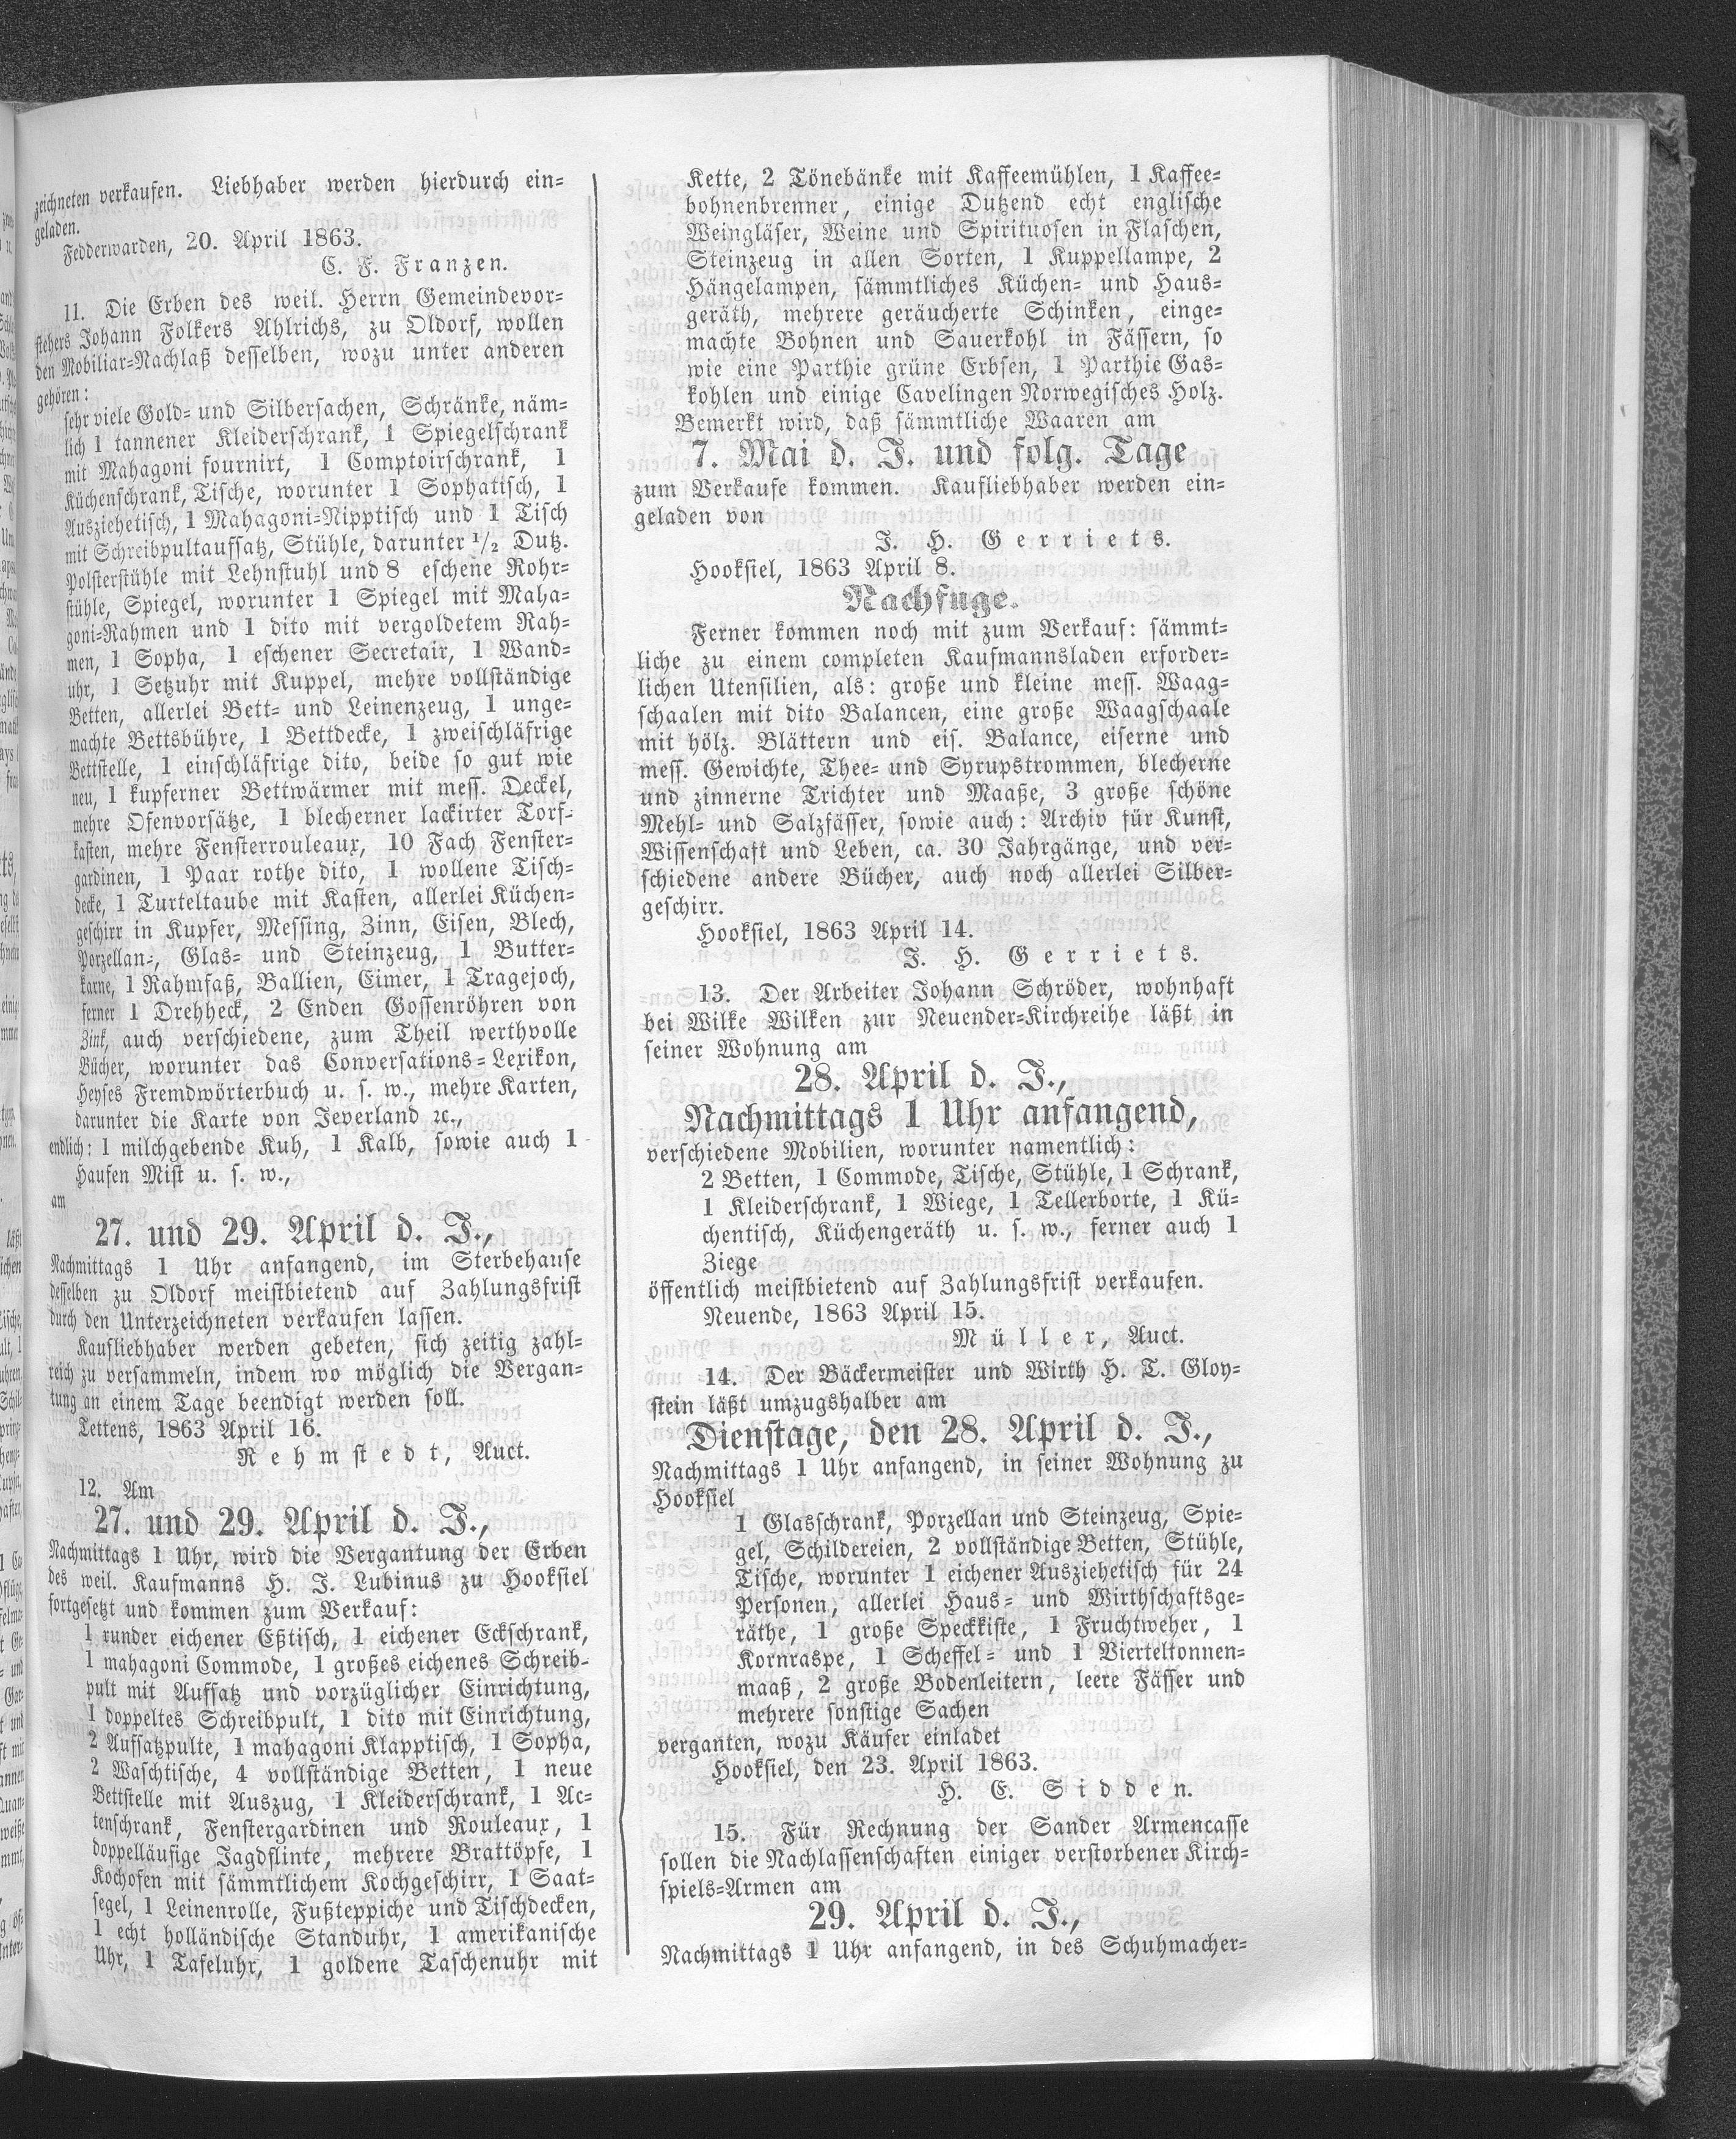 zeichneten verkaufen. Liebhaber werden hierdurch ein-
geladen.
Fedderwarden, 20. April 1863.
C. F. Franzen.
11. Die Erben des weil. Herrn Gemeindevor-
stehers Johann Folkers Ahlrichs, zu Oldorf, wollen
den Mobiliar-Nachlaß desselben, wozu unter anderen
gehören:
sehr viele Gold- und Silbersachen, Schränke, näm-
lich 1 tannener Kleiderschrank, 1 Spiegelschrank
mit Mahagoni fournirt, 1 Comptoirschrank, 1
Küchenschrank, Tische, worunter 1 Sophatisch, 1
Ausziehetisch, 1 Mahagoni-Nipptisch und 1 Tisch
mit Schreibpultaufsatz, Stühle, darunter 1/2 Dutz.
Polsterstühle mit Lehnstuhl und 8 eschene Rohr-
stühle, Spiegel, worunter 1 Spiegel mit Maha-
goni-Rahmen und 1 dito mit vergoldetem Rah-
men, 1 Sopha, 1 eschener Secretair, 1 Wand-
uhr, 1 Setzuhr mit Kuppel, mehre vollständige
Betten, allerlei Bett- und Leinenzeug, 1 unge-
machte Bettsbühre, 1 Bettdecke, 1 zweischläfrige
Bettstelle, 1 einschläfrige dito, beide so gut wie
neu, 1 kupferner Bettwärmer mit mess. Deckel,
mehre Ofenvorsätze, 1 blecherner lackirter Torf-
kasten, mehre Fensterrouleaux, 10 Fach Fenster-
gardinen, 1 Paar rothe dito, 1 wollene Tisch-
decke, 1 Turteltaube mit Kasten, allerlei Küchen-
geschirr in Kupfer, Messing, Zinn, Eisen, Blech,
Porzellan-, Glas- und Steinzeug, 1 Butter-
karne, 1 Rahmfaß, Ballien, Eimer, 1 Tragejoch,
ferner 1 Drehheck, 2 Enden Gossenröhren von
Zink, auch verschiedene, zum Theil werthvolle
Bücher, worunter das Conversations-Lexikon,
Heyses Fremdwörterbuch u. s. w., mehre Karten,
darunter die Karte von Jeverland ꝛc.,
endlich: 1 milchgebende Kuh, 1 Kalb, sowie auch 1
Haufen Mist u. s. w.,
am
27. und 29. April d. J.,
Nachmittags 1 Uhr anfangend, im Sterbehause
desselben zu Oldorf meistbietend auf Zahlungsfrist
durch den Unterzeichneten verkaufen lassen.
Kaufliebhaber werden gebeten, sich zeitig zahl-
reich zu versammeln, indem wo möglich die Vergan-
tung an einem Tage beendigt werden soll.
Tettens, 1863 April 16.
Rehmstedt, Auct.
12. Am
27. und 29. April d. J.,
Nachmittags 1 Uhr, wird die Vergantung der Erben
des weil. Kaufmanns H. J. Lubinus zu Hooksiel
fortgesetzt und kommen zum Verkauf:
1 runder eichener Eßtisch, 1 eichener Eckschrank,
1 mahagoni Commode, 1 großes eichenes Schreib-
pult mit Aufsatz und vorzüglicher Einrichtung,
1 doppeltes Schreibpult, 1 dito mit Einrichtung,
2 Aufsatzpulte, 1 mahagoni Klapptisch, 1 Sopha,
2 Waschtische, 4 vollständige Betten, 1 neue
Bettstelle mit Auszug, 1 Kleiderschrank, 1 Ac-
tenschrank, Fenstergardinen und Rouleaux, 1
doppelläufige Jagdflinte, mehrere Brattöpfe, 1
Kochofen mit sämmtlichem Kochgeschirr, 1 Saat-
segel, 1 Leinenrolle, Fußteppiche und Tischdecken,
1 echt holländische Standuhr, 1 amerikanische
Uhr, 1 Tafeluhr, 1 goldene Taschenuhr mit
Kette, 2 Tönebänke mit Kaffeemühlen, 1 Kaffee-
bohnenbrenner, einige Dutzend echt englische
Weingläser, Weine und Spirituosen in Flaschen,
Steinzeug in allen Sorten, 1 Kuppellampe, 2
Hängelampen, sämmtliches Küchen- und Haus-
geräth, mehrere geräucherte Schinken, einge-
machte Bohnen und Sauerkohl in Fässern, so
wie eine Parthie grüne Erbsen, 1 Parthie Gas-
kohlen und einige Cavelingen Norwegisches Holz.
Bemerkt wird, daß sämmtliche Waaren am
7. Mai d. J. und folg. Tage
zum Verkaufe kommen. Kaufliebhaber werden ein-
geladen von
J. H. Gerriets.
Hooksiel, 1863 April 8.
Nachfuge.
Ferner kommen noch mit zum Verkauf: sämmt-
liche zu einem completen Kaufmannsladen erforder-
lichen Utensilien, als: große und kleine mess. Waag-
schaalen mit dito Balancen, eine große Waagschaale
mit hölz. Blättern und eis. Balance, eiserne und
mess. Gewichte, Thee- und Syrupstrommen, blecherne
und zinnerne Trichter und Maaße, 3 große schöne
Mehl- und Salzfässer, sowie auch: Archiv für Kunst,
Wissenschaft und Leben, ca. 30 Jahrgänge, und ver-
schiedene andere Bücher, auch noch allerlei Silber-
geschirr.
Hooksiel, 1863 April 14.
J. H. Gerriets.
13. Der Arbeiter Johann Schröder, wohnhaft
bei Wilke Wilken zur Neuender-Kirchreihe läßt in
seiner Wohnung am
28. April d. J.,
Nachmittags 1 Uhr anfangend,
verschiedene Mobilien, worunter namentlich:
2 Betten, 1 Commode, Tische, Stühle, 1 Schrank,
1 Kleiderschrank, 1 Wiege, 1 Tellerborte, 1 Kü-
chentisch, Küchengeräth u. s. w., ferner auch 1
Ziege
öffentlich meistbietend auf Zahlungsfrist verkaufen.
Neuende, 1863 April 15.
Müller, Auct.
14. Der Bäckermeister und Wirth H. T. Gloy-
stein läßt umzugshalber am
Dienstage, den 28. April d. J.,
Nachmittags 1 Uhr anfangend, in seiner Wohnung zu
Hooksiel
1 Glasschrank, Porzellan und Steinzeug, Spie-
gel, Schildereien, 2 vollständige Betten, Stühle,
Tische, worunter 1 eichener Ausziehetisch für 24
Personen, allerlei Haus- und Wirthschaftsge-
räthe, 1 große Speckkiste, 1 Fruchtweher, 1
Kornraspe, 1 Scheffel- und 1 Vierteltonnen-
maaß, 2 große Bodenleitern, leere Fässer und
mehrere sonstige Sachen
verganten, wozu Käufer einladet
Hooksiel, den 23. April 1863.
H. E. Sidden.
15. Für Rechnung der Sander Armencasse
sollen die Nachlassenschaften einiger verstorbener Kirch-
spiels-Armen am
29. April d. J.,
Nachmittags 1 Uhr anfangend, in des Schuhmacher-